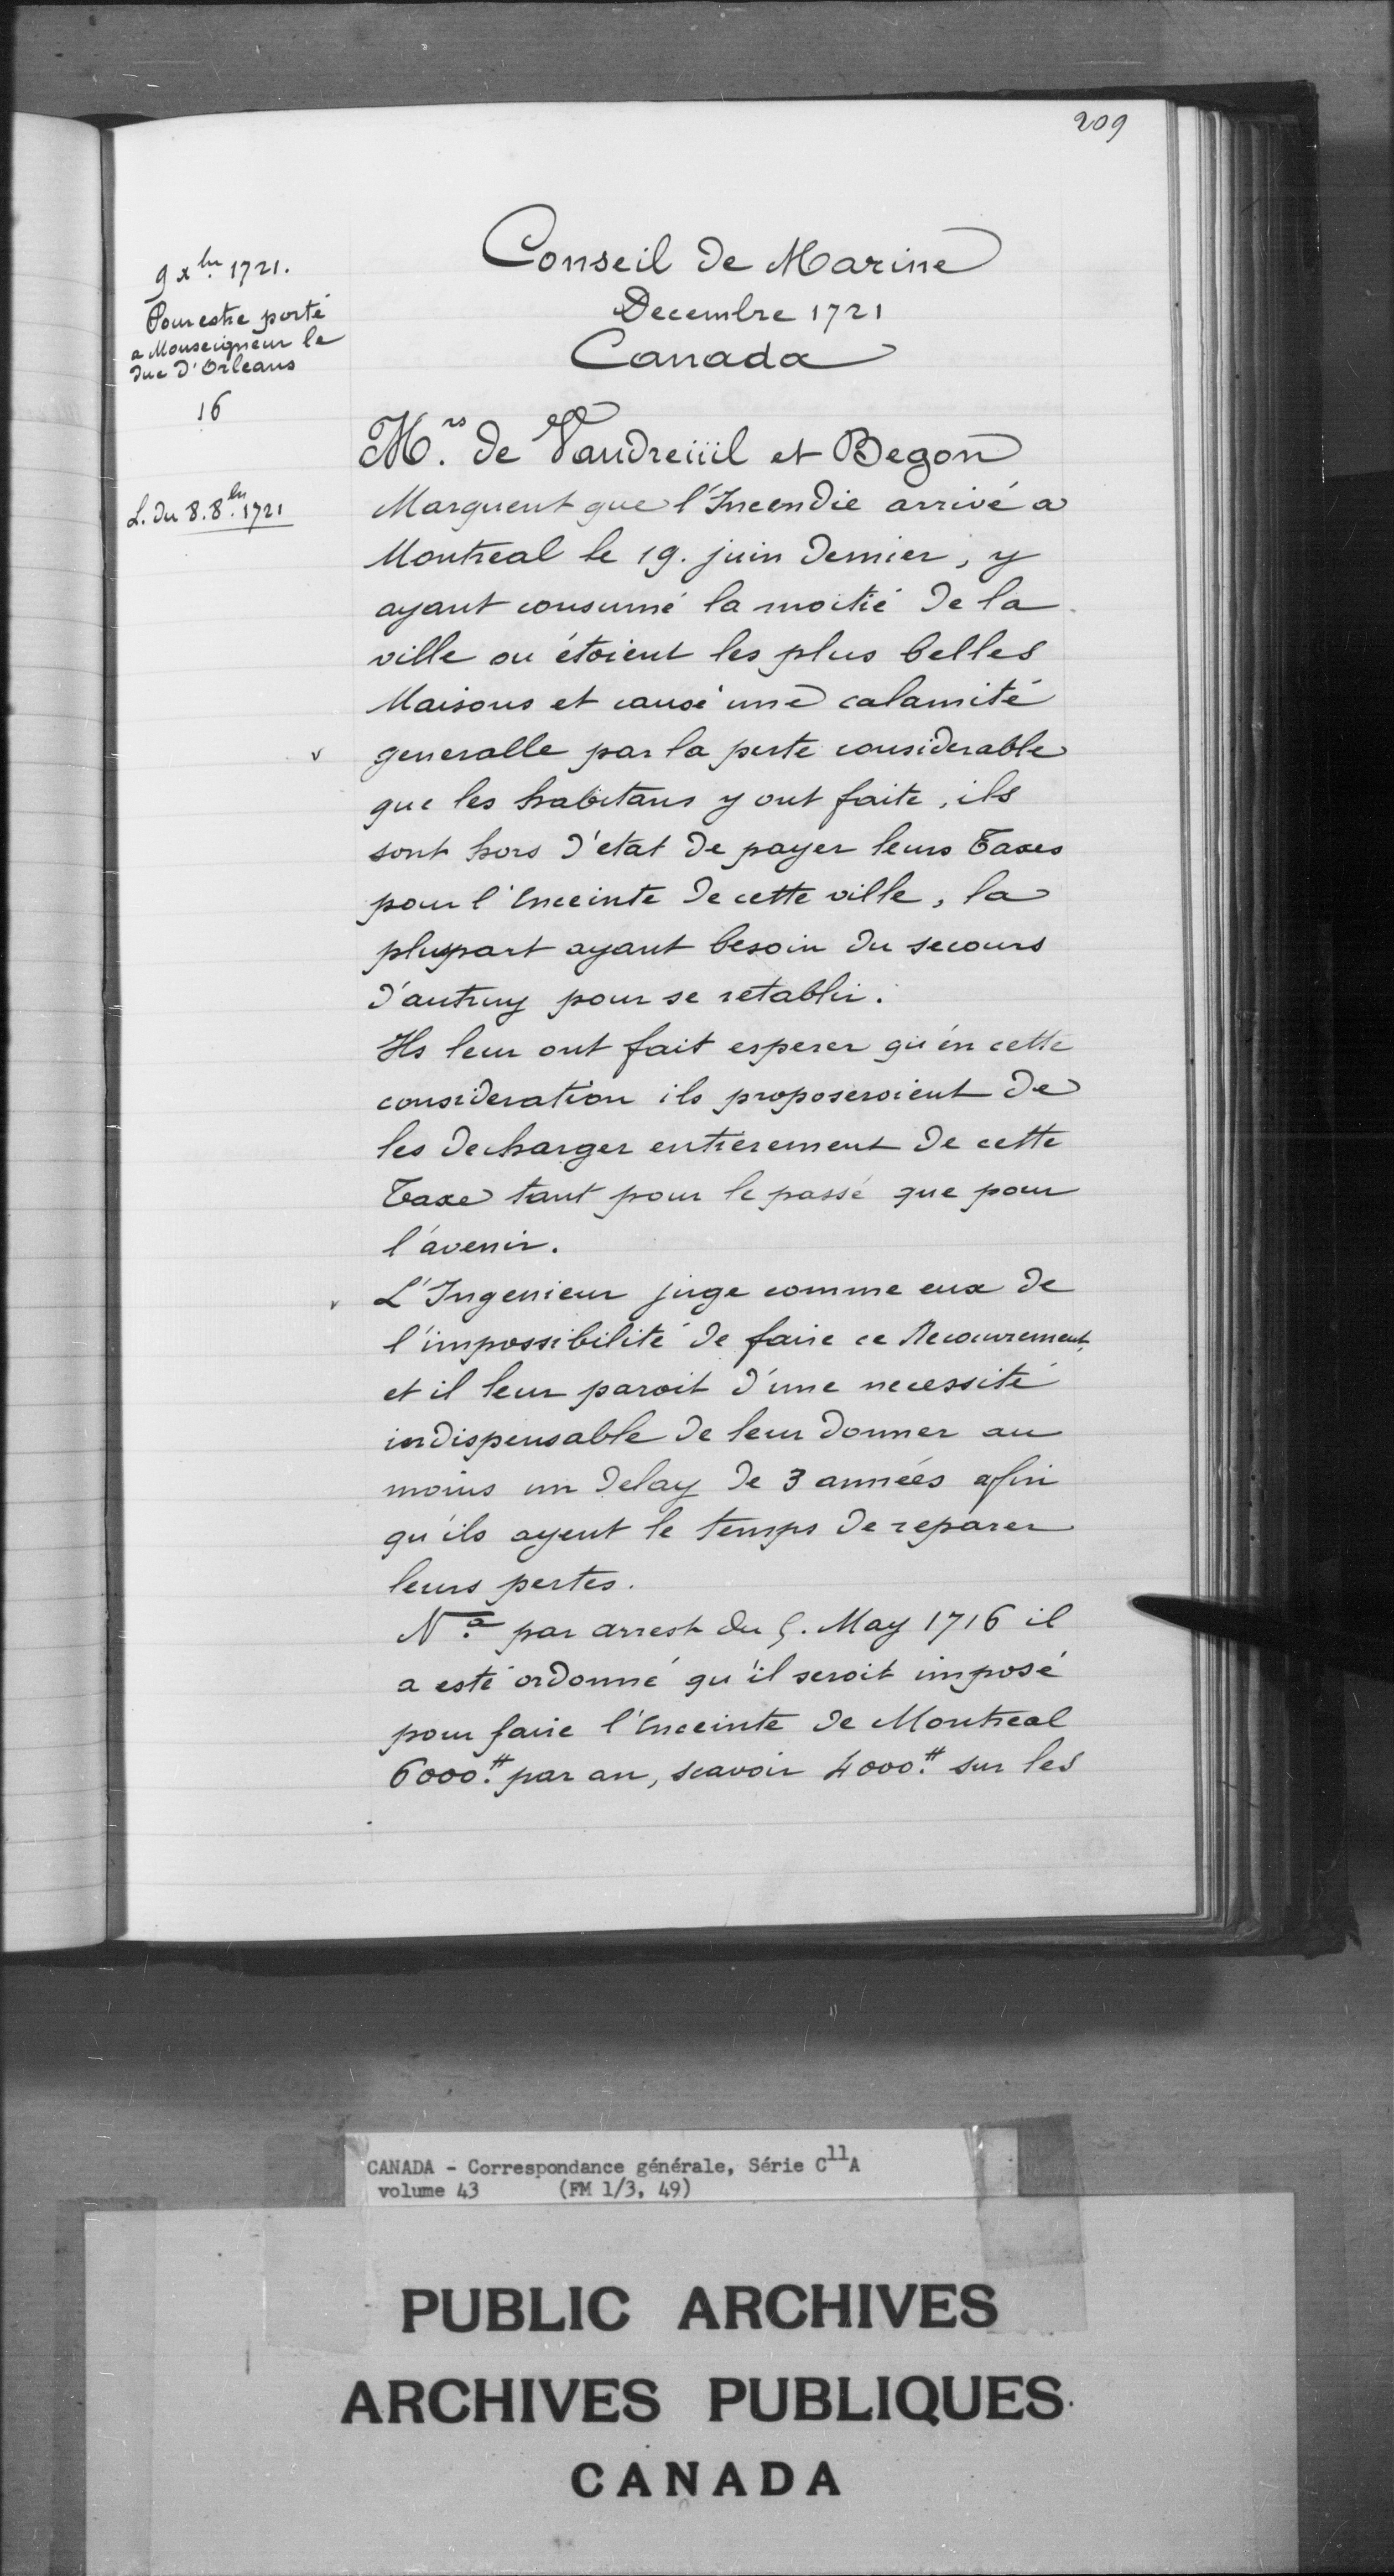 209
Conseil de Marine
Decembre 1721
Canada
9 xbre 1721.
Pour estre porté
a Monseigneur le
duc d'Orleans
16
Mrs. de Vaudreüil et Begon
L. du 8. 8bre 1721
Marquent que l'Incendie arrivé a
Montreal le 19. juin dernier, y
ayant consumé la moitié de la
ville ou étoient les plus belles
Maisons et causé une calamité
v generalle par la perte considerable
que les habitans y ont faite, ils
sont hors d'etat de payer leurs Taxes
pour l'Enceinte de cette ville, la
pluspart ayant besoin du secours
d'autruy pour se retablir.
Ils leur ont fait esperer qu'en cette
consideration ils proposeroient de
les decharger entierement de cette
Taxe tant pour le passé que pour
l'avenir.
v L'Ingenieur juge comme eux de
l'impossibilité de faire ce Recouvrement,
et il leur paroit d'une necessité
indispensable de leur donner au
moins un delay de 3 années afin
qu'ils ayent le temps de reparer
leurs pertes.
Na. par arrest du 5. May 1716 il
a esté ordonné qu'il seroit imposé
pour faire l'Enceinte de Montreal
6000.# par an, scavoir 4000.# sur les
CANADA - Correspondance générale, Série C11A
volume 43 (FM 1/3, 49)
PUBLIC ARCHIVES
ARCHIVES PUBLIQUES
CANADA